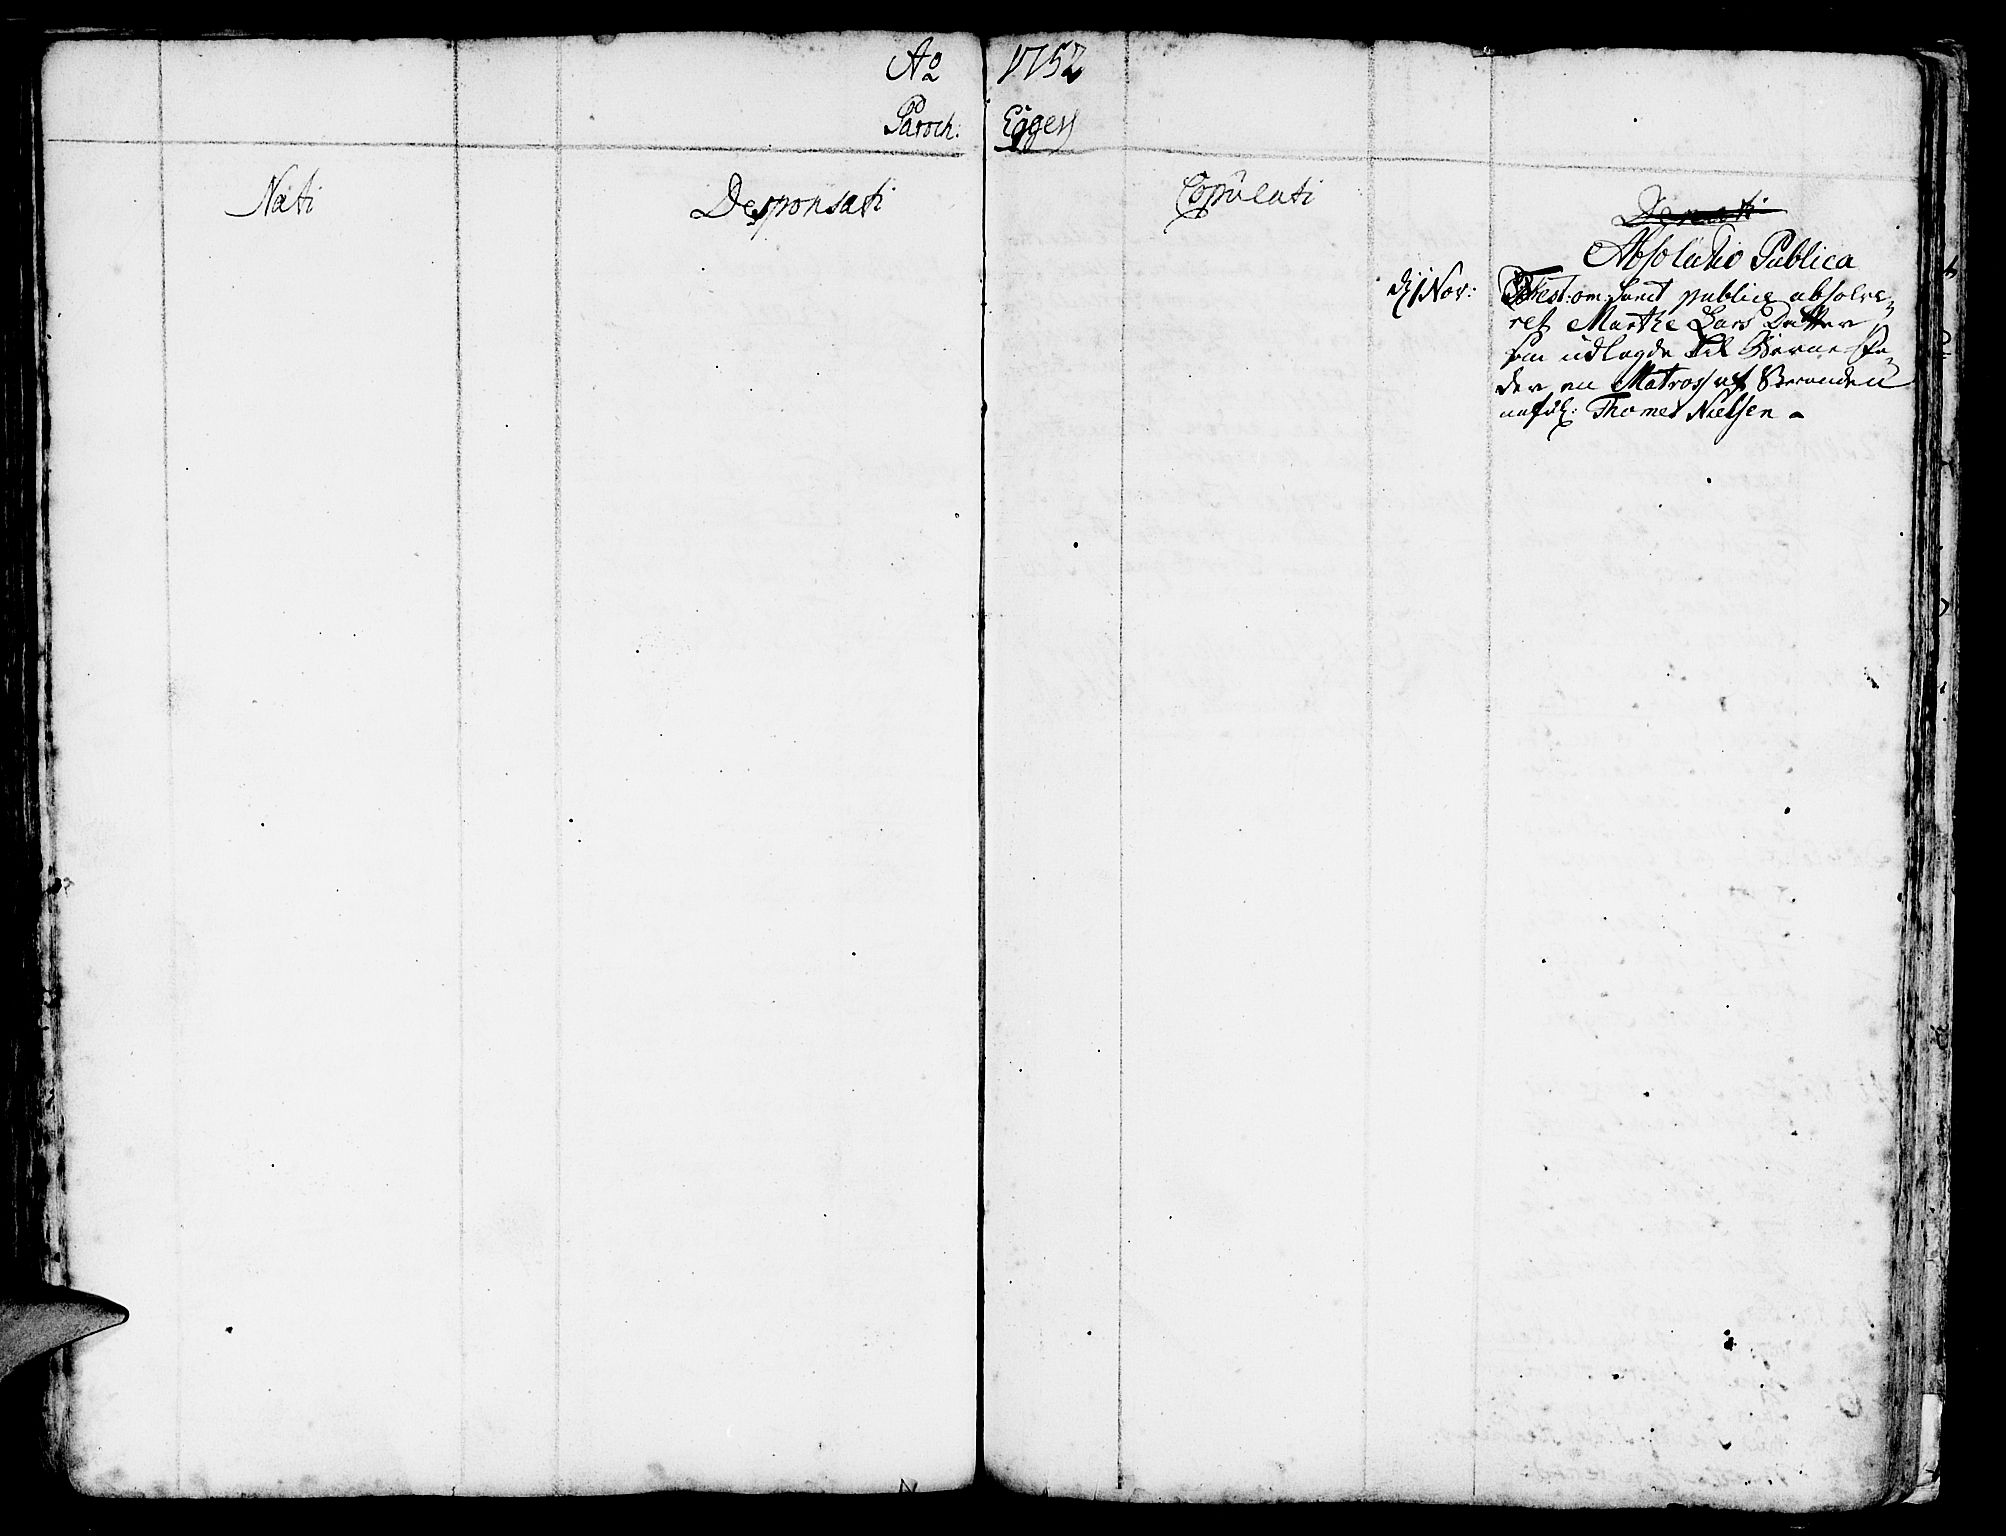 Ao 1752
Paroch: Egers
Nati
Desponsati
Copulati
Denati
Absolutio Publica
d. 1 Nov:
Fest: om: Sanct publice absolve-
ret Marthe Lars Datter
som udlagde til Barne-Fa-
der en Matros af Stranden
nafl: Thomes Nielsen -